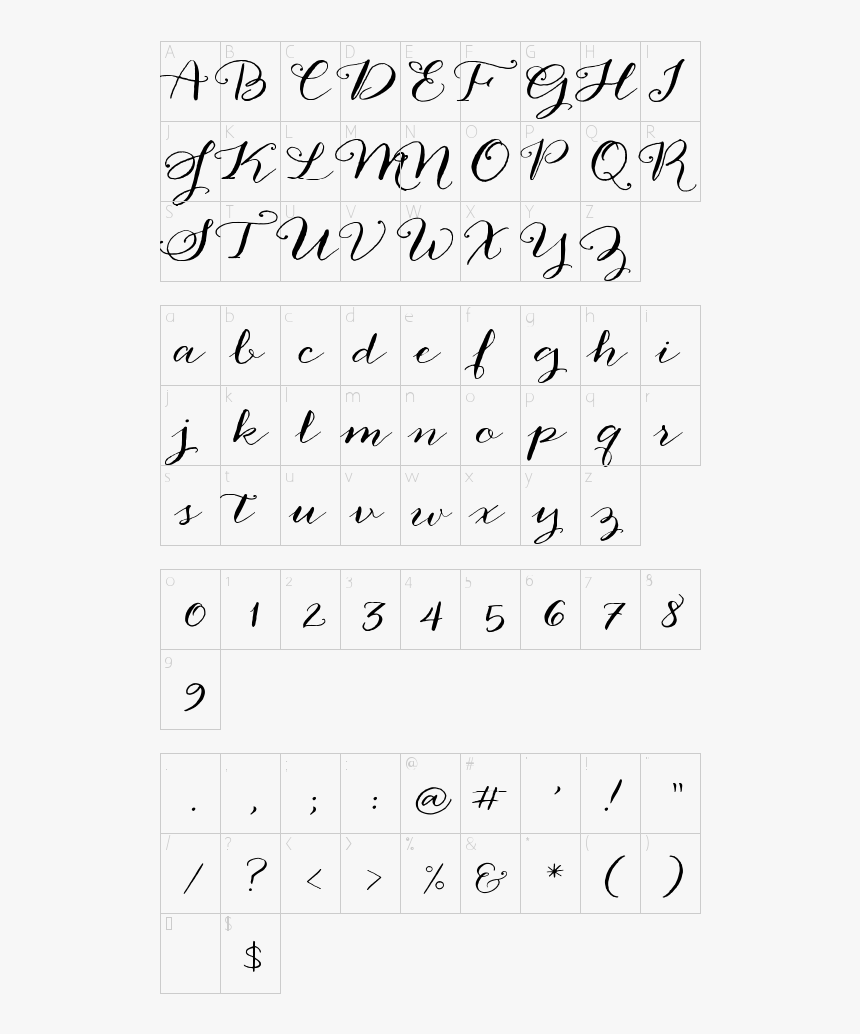 A B C D E F G H I
A B C D E F G H I
J K L M N O P Q R
J K L M N O P Q R
S T U V W X Y Z
S T U V W X Y Z
a b c d e f g h i
a b c d e f g h i
j k l m n o p q r
j k l m n o p q r
s t u v w x y z
s t u v w x y z
0 1 2 3 4 5 6 7 8
0 1 2 3 4 5 6 7 8
9
9
. , ; : @ # ' ! "
. , ; : @ # ' ! "
/ ? < > % & * ( )
/ ? < > % & * ( )
$
$